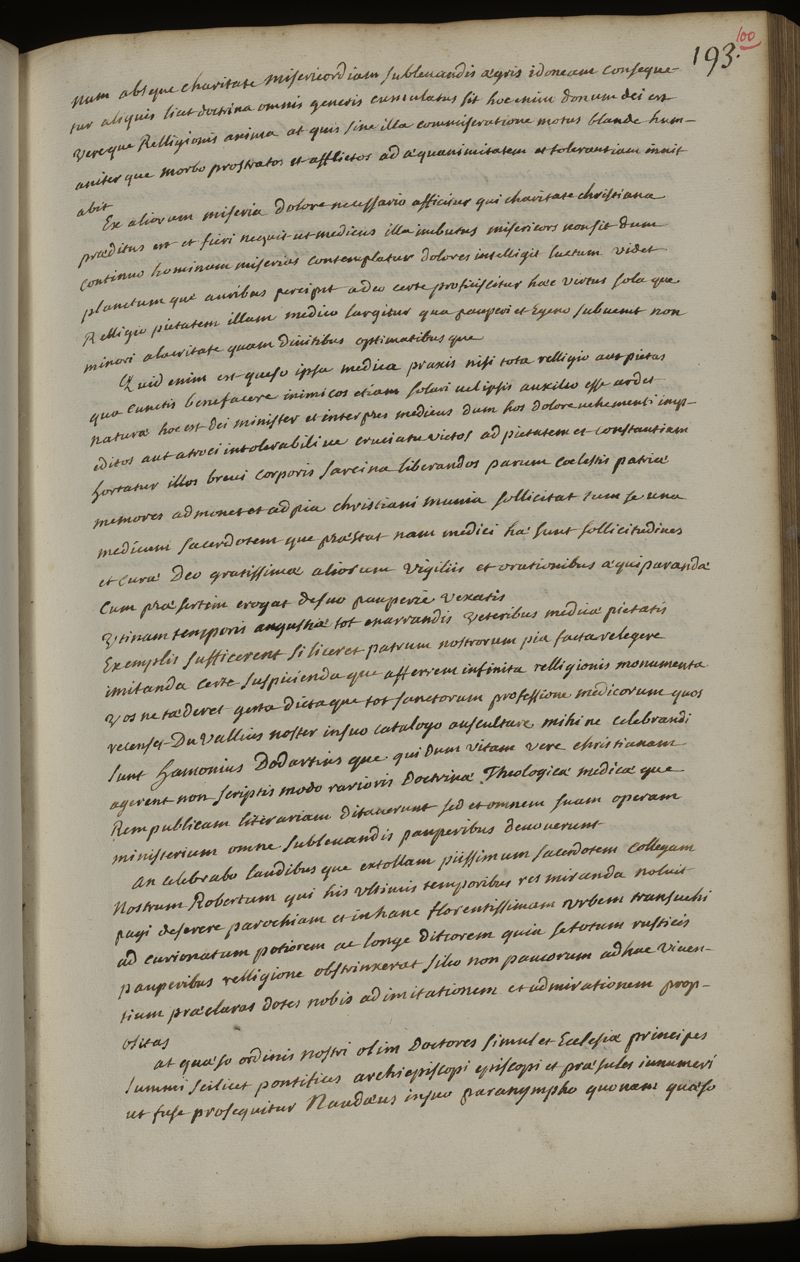 100
193.
num absque charitate misericordiam sublevandis ægris idoneam conseque-
tur aliquis licet doctrina omnis generis cumulatus sit hoc enim donum dei est
vereque Relligionis anima at quis sine illa commiseratione motus blande hum-
aniter que morbo prostratos et afflictos ad æquanimitatem et tolerantiam invit
abit
Ex aliorum miseria dolore necessario afficitur qui charitate christiana
præditus est et fieri nequit ut medicus illa imbutus misericors non sit dum
continuo hominum miserias contemplatur dolores intelligit luctum videt
planctum que auribus percipit adeo certe proficiscitur hæc virtus sola que
Relligio pietatem illam medico largitur qua pauperi et Egeno subvenit non
minori alacritate quam divitibus optimatibus que
Quid enim est quæso ipsa medica praxis nisi tota relligio aut pietas
qua cunctis benefacere inimicos etiam solari vel ipsis auxilio esse ardet
naturæ hoc est dei minister et interpres medicus dum hos dolore vehementi imp-
editos aut atroci intolerabili ve cruciatu victos ad pietatem et constantiam
hortatur illos brevi corporis sarcina liberandos parum coelestis patriæ
memores admonet et ad pia christiani munia sollicitat tum se una
medicum sacerdotem que præstat nam medici hæ sunt sollicitudines
et curæ Deo gratissimæ aliorum vigiliis et orationibus æquiparandæ
cum præsertim erogat de suo pauperie vexatis
Utinam temporis angustiæ tot enarrandis veteribus medicæ pietatis
Exemplis sufficerent si liceret patrum nostrorum pia facta relegere
imitanda certe suspicienda que afferrem infinita relligionis monumenta
vos ne tæderet gesta dicta que tot sanctorum professione medicorum quos
recenset Du Vallius noster in suo catalogo auscultare mihi ne celebrandi
sunt Hamonius Dodartius que qui dum vitam vere christianam
agerent non scriptis modo rarioris Doctrinæ Theologicæ medicæ que
Rempublicam literariam ditaverunt sed et omnem suam operam
ministerium omne sublevandis pauperibus devoverunt
An celebrabo laudibus que extollam piissimum sacerdotem collegam
Nostrum Robertum qui his ultimis temporibus res miranda noluit
pagi deserere parochiam et in hanc florentissimam urbem transvehi
ad curionatum potiorem ac longe ditiorem quia se totum rusticis
pauperibus relligione obstrinxerat sileo non paucorum adhuc viven-
tium præclaras dotes nobis ad imitationem et admirationem prop-
ositas
at quæso ordinis nostri olim Doctores simul et Ecclesiæ principes
summi scilicet pontifices archiepiscopi episcopi et præsules innumeri
ut fuse prosequitur Naudæus in suo paranympho quonam quæso